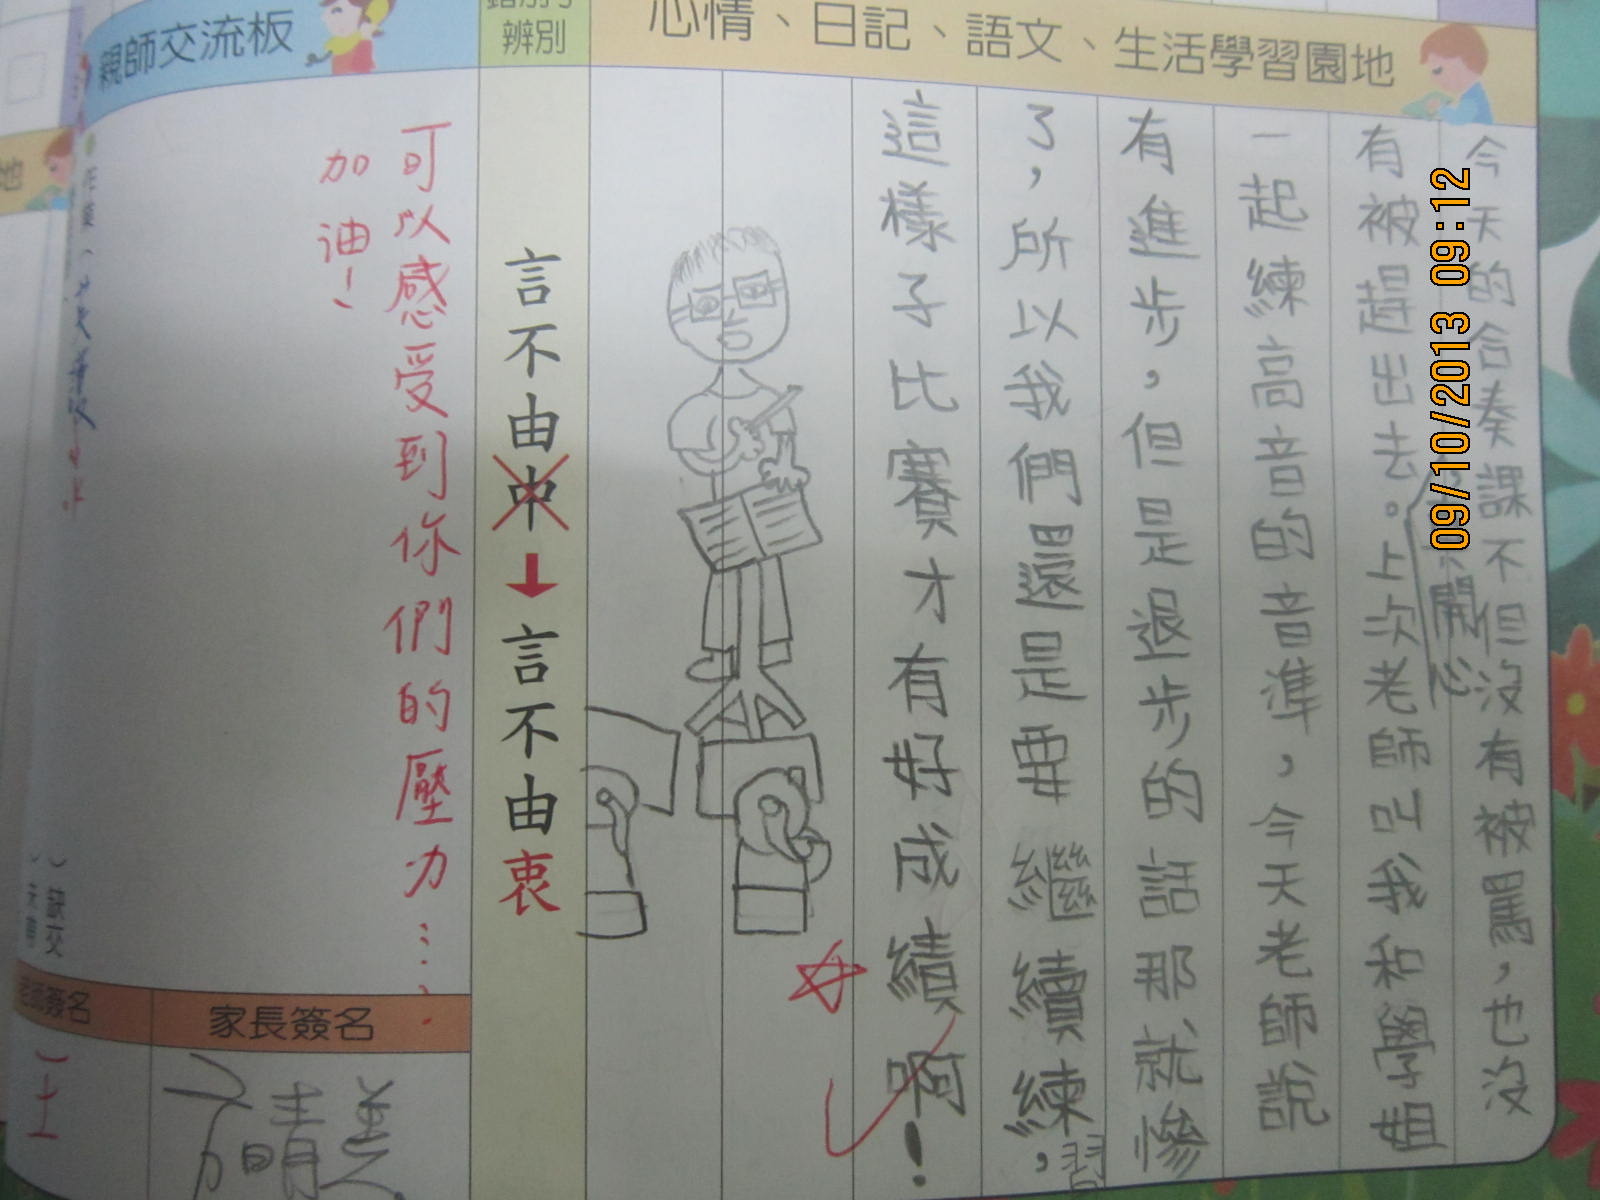 心情、日記、語文、生活學習園地
今天的合奏課不但沒有被罵，也沒
開心
有被趕出去。上次老師叫我和學姐
一起練高音的音準，今天老師說
有進步，但是退步的話那就慘
了，所以我們還是要繼續練習，
這樣子比賽才有好成績啊！
辨別
言不由中
言不由衷
親師交流板
可以感受到你們的壓力……
加油！
家長簽名
老師簽名
缺交
09/10/2013 09:12